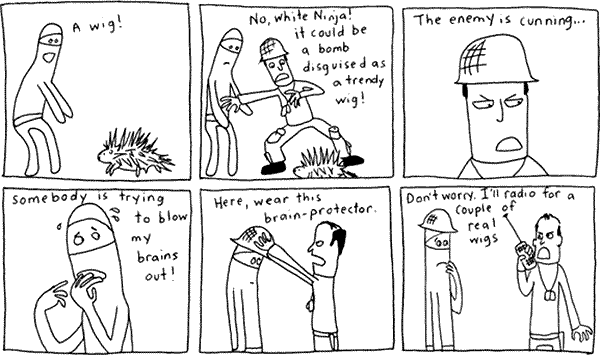 A wig!
No, white Ninja!
it could be
a bomb
disguised as
a trendy
wig!
The enemy is cunning...
Somebody is trying
to blow
my
brains
out!
Here, wear this
brain-protector.
Don't worry. I'll radio for a
couple of
real
wigs